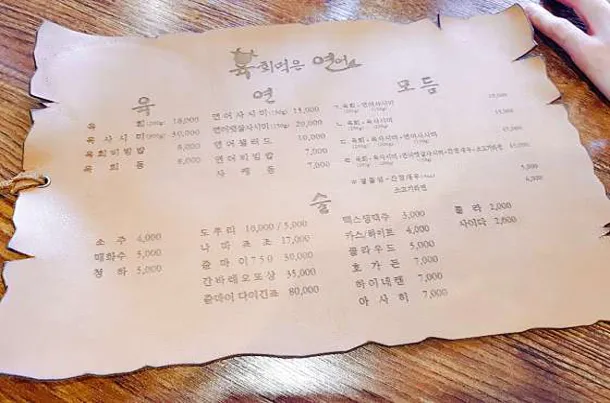 육회먹은 연어
육
육 회(200g) 18,000
육 사 시 미(200g) 30,000
육회비빔밥 8,000
육 회 동 8,000
연
연어사시미(150g) 15,000
연어뱃살사시미(150g) 20,000
연어샐러드 10,000
연어비빔밥 7,000
사 케 동 7,000
모듬
ㄱ. 육회+연어사시미
ㄴ. 육회+육사시미
ㄷ. 육회+육사시미+연어사시미
ㄹ. 육회+육사시미+연어뱃살사시미+간장새우+소고기라면
소고기라면
술
소 주 4,000
매화수 5,000
청 하 5,000
도쿠리 10,000 / 5,000
나 마 죠 조 17,000
쥰 마 이 7 5 0 30,000
간바레오또상 35,000
쥰마이 다이긴죠 80,000
맥스생맥주 3,000
카스/하이트 4,000
클라우드 5,000
호 가 든 7,000
하이네켄 7,000
아 사 히 7,000
콜 라 2,000
사이다 2,000